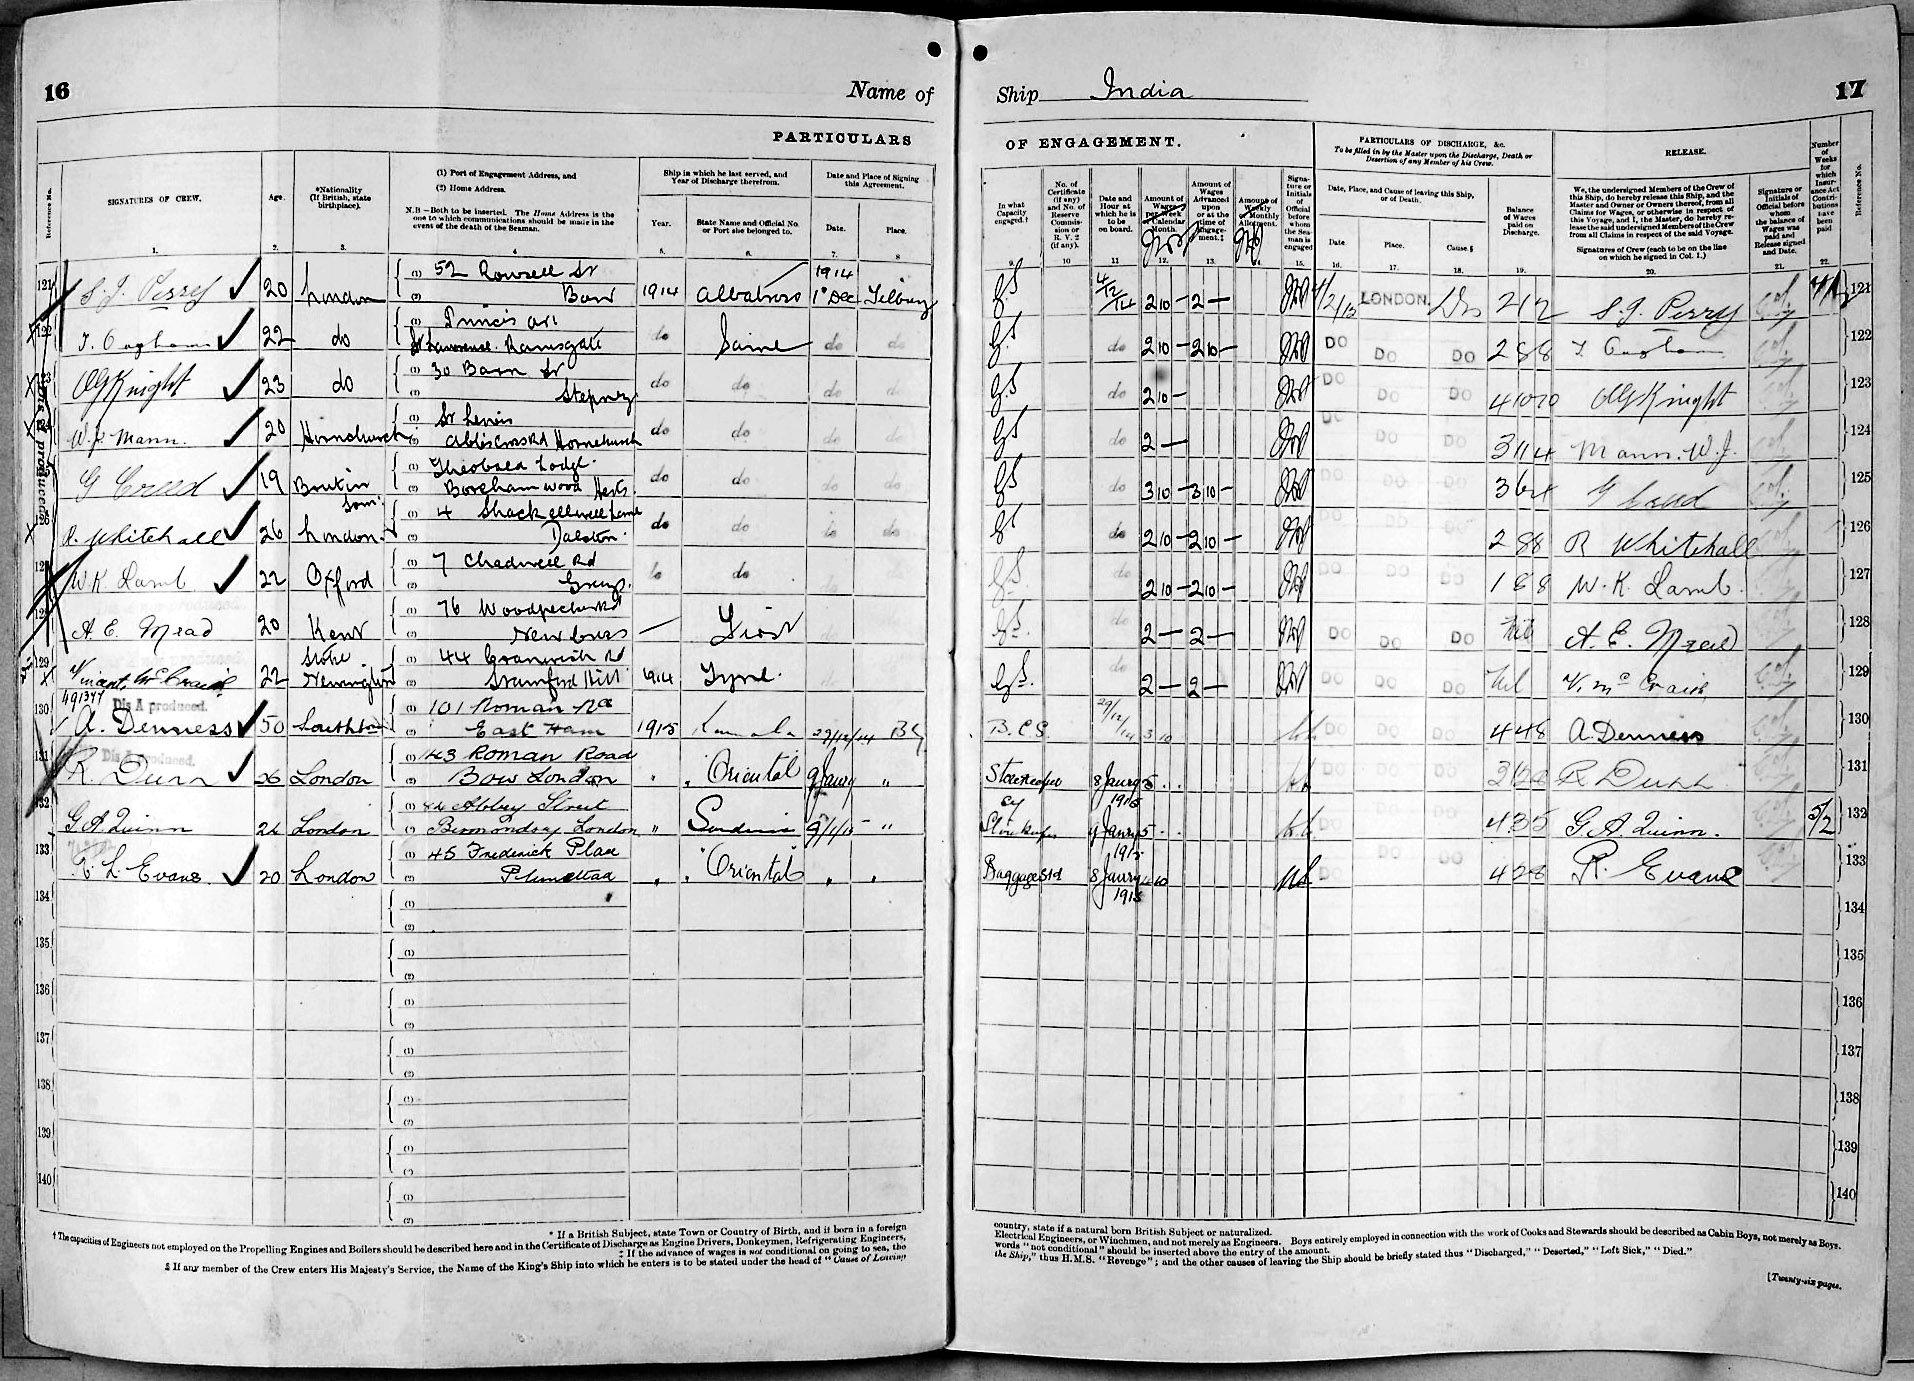 16
Name of
PARTICULARS
Reference No.
SIGNATURES OF CREW.
Age.
*Nationality (If British, state birthplace).
(1) Port of Engagement Address, and
(2) Home Address.
N.B—Both to be inserted. The Home Address is the one to which communications should be made in the event of the death of the Seaman.
Ship in which he last served, and Year of Discharge therefrom.
Year.
State Name and Official No. or Port she belonged to.
Date and Place of Signing this Agreement.
Date.
Place.
1. 2. 3. 4 5. 6. 7. 8
121 S. J. Perry 20 London (1) 52 Rowsell St (2) Bow 1914 Albatross 1914 1st Dec Tilbury
122 22 do (1) (2) St Lawrence. Ramsgate do Same do do
123 Knight 23 do (1) 30 Barn St (2) Stepney do do do do
124 W. J. Mann. 20 Hornchurch (1) St (2) Hornchurch do do do do
125 G Creed 19 (1) Theobald Lodge (2) Borehamwood Herts. do do do do
126 R. Whitehall 26 London (1) 4 Shackellwell Lane (2) Dalston. do do do do
127 W K Lamb 22 Oxford (1) 7 Chadwell Rd (2) Grays. do do
128 A. E. Mead 20 Kent (1) 76 (2) New Cross — First
129 Vincent McCraith 22 Stoke Newington (1) 44 Cranwich Rd (2) Stamford Hill 1914 Tyne.
491377
Dis A produced.
130 A. Denness 50 Southton (1) 101 Roman Rd (2) East Ham 1915 29/12/14
Dis A produced.
131 R. Dunn 26 London (1) 143 Roman Road (2) Bow London " " Oriental 9 Jany "
132 G A Quinn London (1) Abbey Street (2) Bermondsey London " 9/1/15 "
133 L. Evans. 20 London (1) 45 Frederick Place (2) Plumstead " " Oriental " "
134 (1) (2)
135 (1) (2)
136 (1) (2)
137 (1) (2)
138 (1) (2)
139 (1) (2)
140 (1) (2)
* If a British Subject, state Town or Country of Birth, and if born in a foreign
† The capacities of Engineers not employed on the Propelling Engines and Boilers should be described here and in the Certificate of Discharge as Engine Drivers, Donkeymen, Refrigerating Engineers,
‡ If the advance of wages is not conditional on going to sea, the
§ If any member of the Crew enters His Majesty's Service, the Name of the King's Ship into which he enters is to be stated under the head of "Cause of Leaving
Ship India
17
OF ENGAGEMENT.
In what Capacity engaged.†
No. of Certificate (if any) and No. of Reserve Commission or R. V. 2 (if any).
Date and Hour at which he is to be on board.
Amount of Wages per Week or Calendar Month.
Amount of Wages Advanced upon or at the time of Engagement.‡
Amount of Weekly or Monthly Allotment.
Signature or Initials of Official before whom the Seaman is engaged
PARTICULARS OF DISCHARGE, &c.
To be filled in by the Master upon the Discharge, Death or Desertion of any Member of his Crew.
Date, Place, and Cause of leaving this Ship, or of Death.
Date.
Place.
Cause.§
Balance of Wages paid on Discharge.
RELEASE.
We, the undersigned Members of the Crew of this Ship, do hereby release this Ship, and the Master and Owner or Owners thereof, from all Claims for Wages, or otherwise in respect of this Voyage, and I, the Master, do hereby release the said undersigned Members of the Crew from all Claims in respect of the said Voyage.
Signatures of Crew (each to be on the line on which he signed in Col. 1.)
Signature or Initials of Official before whom the balance of Wages was paid and Release signed and Date.
Number of Weeks for which Insurance Act Contributions have been paid
Reference No.
9. 10 11 12. 13. 14. 15. 16. 17. 18. 19. 20. 21. 22.
GS 4/12/14 2 10 — 2 — LONDON. 2 1 2 S. J. Perry 121
GS do 2 10 — 2 10 — DO DO DO 2 8 8 122
GS do 2 10 — DO DO DO 4 10 10 Knight 123
GS do 2 — DO DO DO 3 11 4 Mann. W. J. 124
GS do 3 10 — 3 10 — DO DO DO 3 6 4 G Creed 125
GS do 2 10 — 2 10 — DO DO DO 2 8 8 R Whitehall 126
GS do 2 10 — 2 10 — DO DO DO 1 8 8 W. K. Lamb. 127
GS. do 2 — 2 — DO DO DO Nil A. E. Mead 128
GS. do 2 — 2 — DO DO DO Nil V. McCraith 129
29/12/14 3 10 DO DO DO 4 4 8 A. Denness 130
Storekeeper 8 Jany 1915 5 DO DO DO R Dunn 131
Storekeeper 9 Jany 1915 5 DO DO DO 4 3 5 G A. Quinn. 5/2 132
Baggage Std 8 Jany 1915 4 10 DO DO 4 2 8 R. Evans 133
134
135
136
137
138
139
140
country, state if a natural born British Subject or naturalized.
Electrical Engineers, or Winchmen, and not merely as Engineers. Boys entirely employed in connection with the work of Cooks and Stewards should be described as Cabin Boys, not merely as Boys.
words "not conditional" should be inserted above the entry of the amount.
the Ship," thus H.M.S. "Revenge"; and the other causes of leaving the Ship should be briefly stated thus "Discharged," "Deserted," "Left Sick," "Died."
[Twenty-six pages.